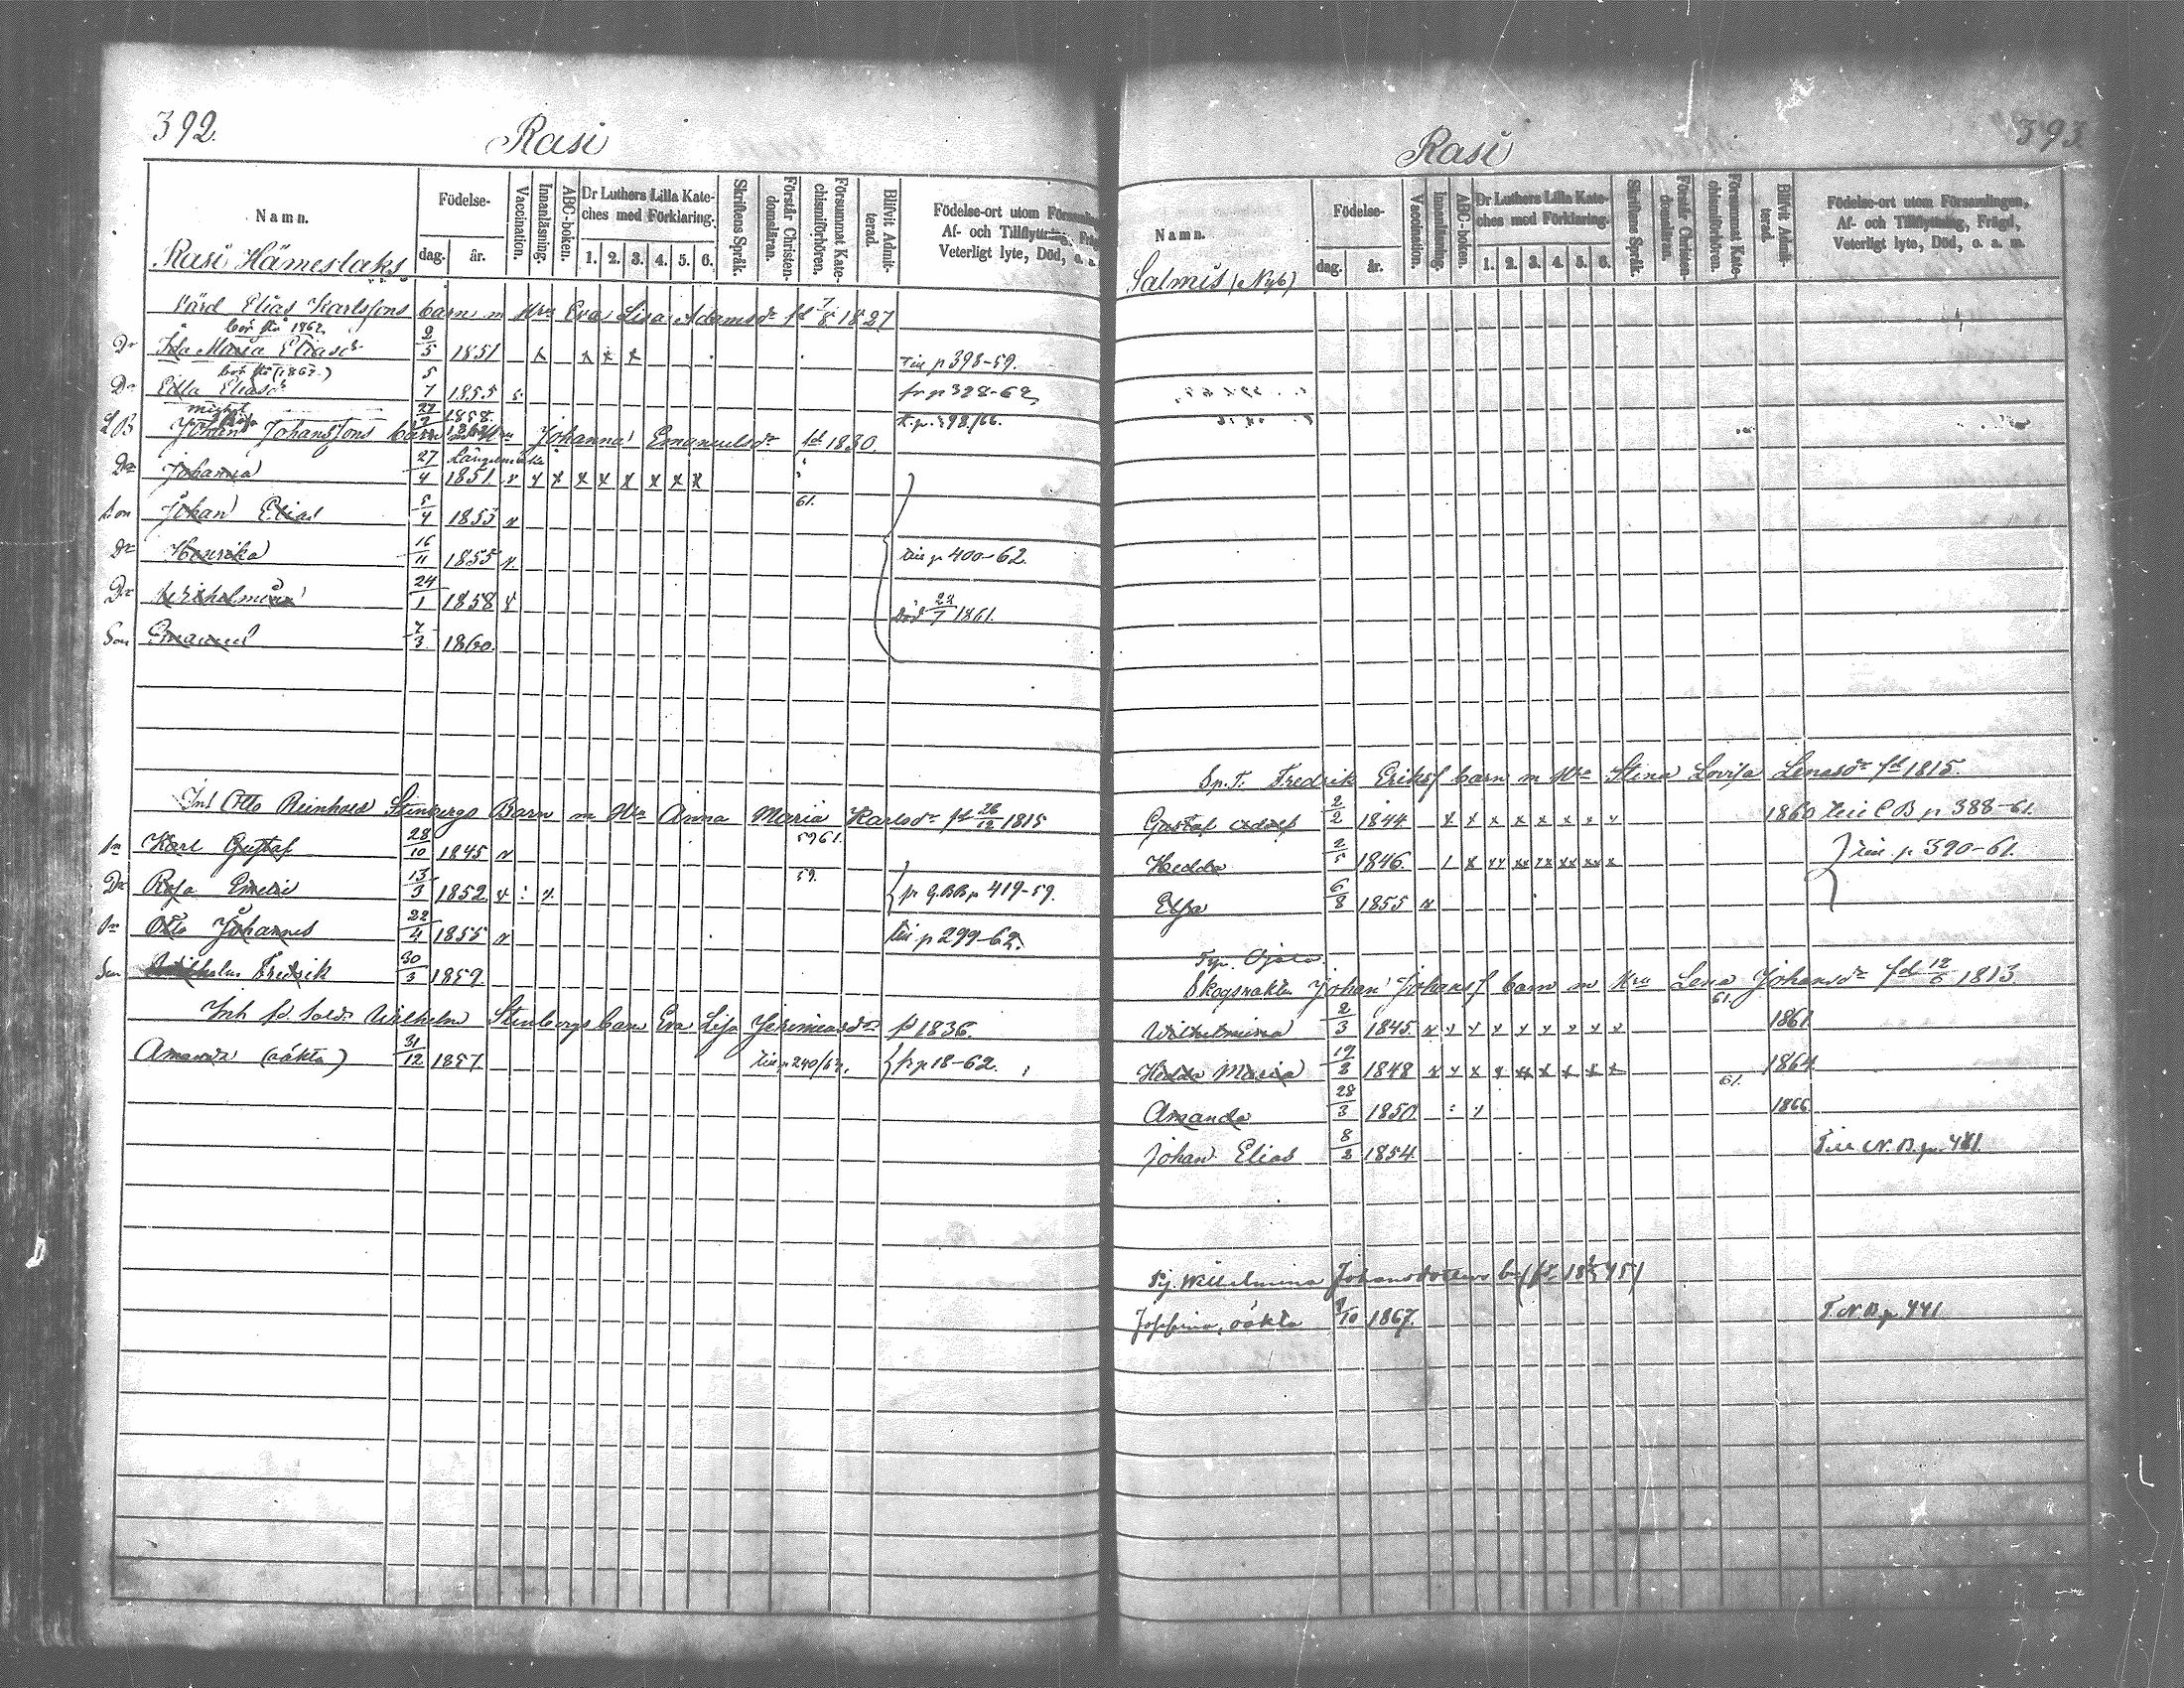 392.
Rasi
Namn.
Födelse-
dag.
år.
Vaccination.
Innanläsning.
ABC-boken.
Dr Luthers Lilla Kate-
ches med Förklaring.
1. 2. 3. 4. 5. 6.
Skriftens Språk.
Förstår Christen-
domsläran.
Försummat Kate-
chismiförhören.
Blifvit Admit-
terad.
Födelse-ort utom Församlingen
Af- och Tillflyttning, Frägd
Veterligt lyte, Död, o. a.
Rasi Hämeslaks
Värd Elias Karlssons barn m Hru Eva Lisa Adamsdr fd 7/8 1827
Dr Ida Maria Eliasdr 2/5 1851 x x x x Till p 398-59.
Dr Edla Eliasdr 5/7 1855 fr p 328-62
Johan Johanssons barn Johanna Emanuelsdr fd 1830.
Dr Johanna 27/4 1851 x x x x x x x x x
Son Johan Elias 5/4 1853 61.
Dr Henrika 16/11 1855 till p 400-62.
Dr Wilhelmina 24/1 1858 Död 22/7 1861.
Son Emanuel 7/3 1860.
Inh Otto Reinhold Stenbergs Barn m Hru Anna Maria Karlsdr fd 26/12 1815
Sn Karl Gustaf 28/10 1845 5961.
Dr Rosa Emelie 13/3 1852 59. fr G.BB p 419-59.
Sn Otto Johannes 22/4 1855 till p 299-62.
Son Wilhelm Fredrik 30/3 1859.
Inh fd Sold. Wilhelm Stenbergs barn Eva Lisa Jeremiasdr fd 1836.
Amanda (oäkta) 31/12 1857. fr p 18-62.
Rasi
393
Namn.
Födelse-
dag.
år.
Vaccination.
Innanläsning.
ABC-boken.
Dr Luthers Lilla Kate-
ches med Förklaring.
1. 2. 3. 4. 5. 6.
Skriftens Språk.
Förstår Christen-
domsläran.
Försummat Kate-
chismiförhören.
Blifvit Admit-
terad.
Födelse-ort utom Församlingen,
Af- och Tillflyttning, Frägd,
Veterligt lyte, Död, o. a. m.
Salmis (Nyb)
Sp.T. Fredrik Eriksf barn m Hru Stina Lovisa Lenasdr fd 1815.
Gustaf Adolf 2/2 1844 x x x x x x x x 1860 till C B p 388-61.
Hedda 2/5 1846. till p 390-61.
Elsa 6/8 1855
Typ. Ojala
Skogsvakten Johan Johansf barn m Hru Lena Johansdr fd 12/6 1813
Wilhelmina 2/3 1845. 61. 1861
Hedda Maria 19/8 1848 1864
Amanda 28/3 1850 61. 1866
Johan Elias 8/2 1854 Till N. B. p. 481.
Pig. Wilhelmina Johansdotters
Josefina, oäkta 1867. T. N. B. p. 441